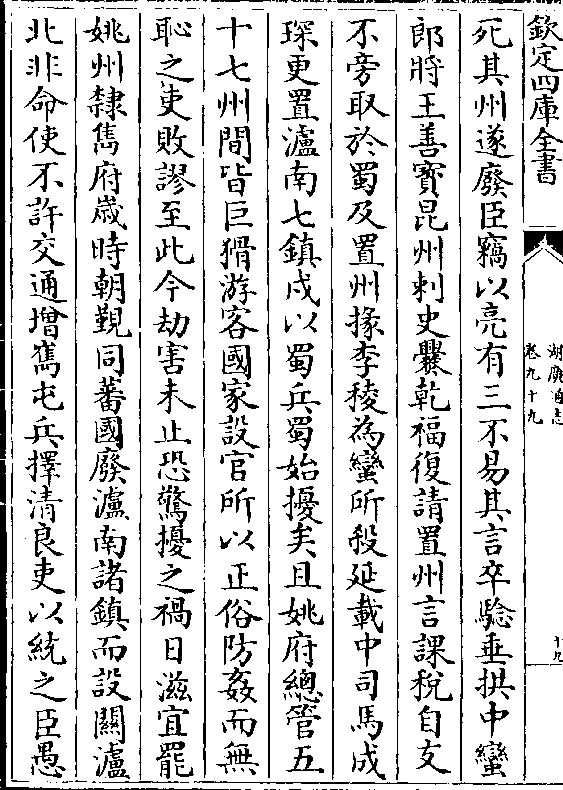 欽定四庫全書
湖廣通志
卷九十九
十九
死其州遂廢臣竊以亮有三不易其言卒驗垂拱中蠻
郎將王善寳昆州刺史爨乾福復請置州言課稅自支
不旁取於蜀及置州掾李稜為蠻所殺延載中司馬成
琛更置瀘南七鎮戍以蜀兵蜀始擾矣且姚府總管五
十七州間皆巨猾游客國家設官所以正俗防姦而無
恥之吏敗謬至此今劫害未止恐驚擾之禍日滋宜罷
姚州隸雋府嵗時朝覲同蕃國廢瀘南諸鎮而設關瀘
北非命使不許交通增雋屯兵擇清良吏以統之臣愚